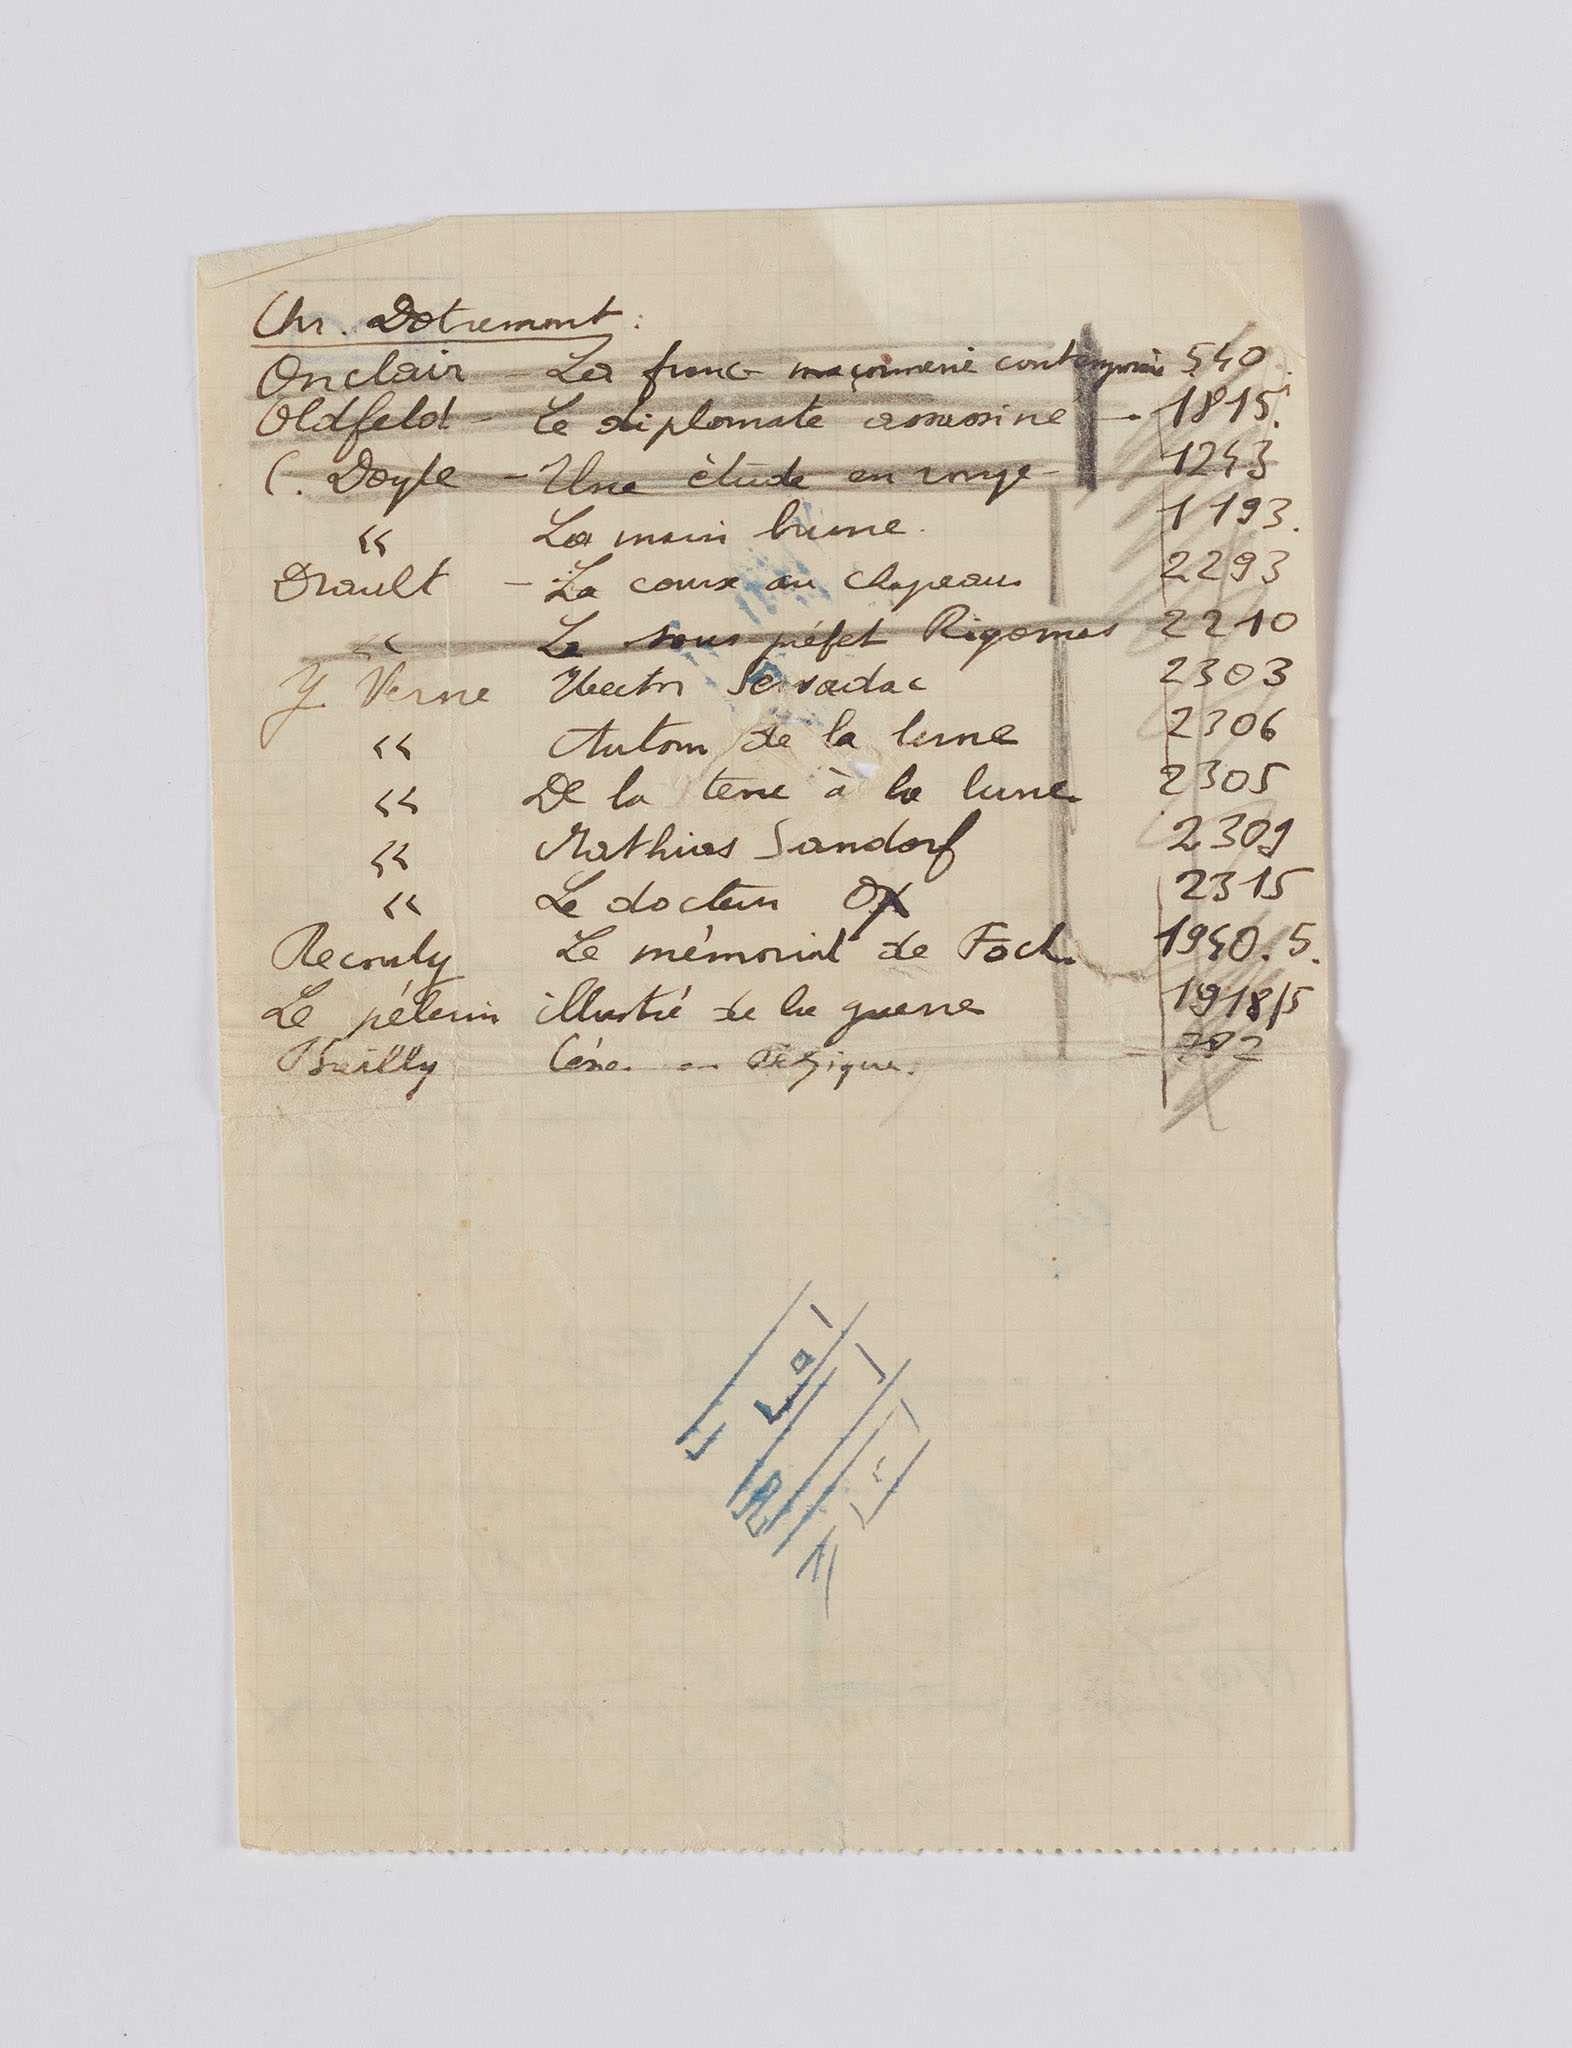 Chr. Dotremont :
Onclair - La franc-maçonnerie contemporaine 540
Oldfeld - Le diplomate assassiné - 1815.
C. Doyle - Une étude en rouge - 1243
" La main brune. 1193.
Drault - La course au chapeau 2293
" Le sous-préfet Rigomas 2210
J. Verne Hector Servadac 2303
" Autour de la lune 2306
" De la terre à la lune. 2305
" Mathias Sandorf 2309
" Le docteur OX 2315
Recouly Le mémorial de Foch. 1940.5.
Le pèlerin illustré de la guerre 1918/5
Bailly